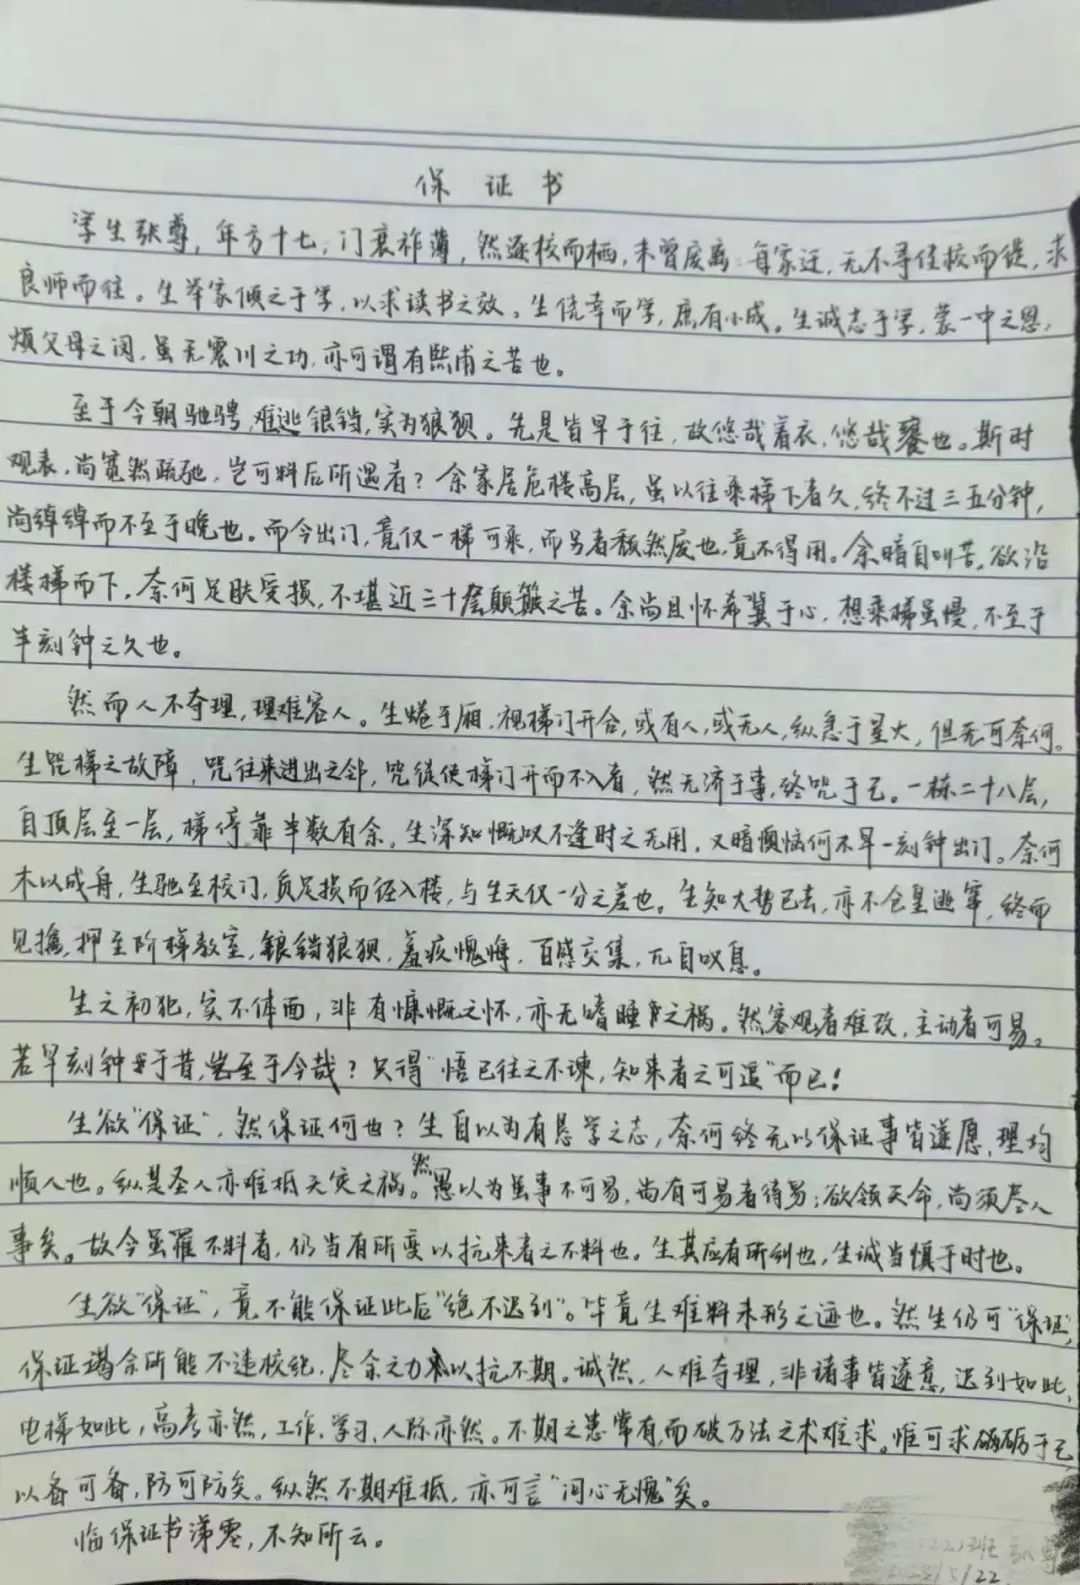 保证书
学生张尊，年方十七，门衰祚薄，然逐校而栖，未曾废离。每家迁，无不寻佳校而徙，求
良师而往。生举家倾之于学，以求读书之效。生侥幸而学，庶有小成。生诚志于学，蒙一中之恩，
烦父母之闵，虽无震川之功，亦可谓有熙甫之苦也。
至于今朝驰骋，难逃锒铛，实为狼狈。先是皆早于往，故悠哉着衣，悠哉饔也。斯时
观表，尚宽然疏弛，岂可料后所遇者？余家居危楼高层，虽以往乘梯下者久，终不过三五分钟，
尚绰绰而不至于晚也。而今出门，竟仅一梯可乘，而另者颓然废也，竟不得用。余暗自叫苦，欲沿
楼梯而下，奈何足肤受损，不堪近三十层颠簸之苦。余尚且怀希冀于心，想乘梯虽慢，不至于
半刻钟之久也。
然而人不夺理，理难容人。生蜷于厢，视梯门开合，或有人，或无人，纵急于星火，但无可奈何。
生咒梯之故障，咒往来进出之邻，咒徒使梯门开而不入者，然无济于事，终咒于己。一栋二十八层，
自顶层至一层，梯停靠半数有余，生深知慨叹不逢时之无用，又暗懊恼何不早一刻钟出门。奈何
木以成舟，生驰至校门，负足损而径入楼，与生天仅一分之差也。生知大势已去，亦不仓皇逃窜，终而
见擒，押至阶梯教室，锒铛狼狈，羞疚愧悔，百感交集，兀自叹息。
生之初犯，实不体面，非有慷慨之怀，亦无嗜睡之祸。然客观者难改，主动者可易。
若早刻钟于昔，岂至于今哉？只得"悟已往之不谏，知来者之可追"而已！
生欲"保证"，然保证何也？生自以为有恳学之志，奈何终无以保证事皆遂愿，理均
顺人也。纵是圣人亦难抵天灾之祸。然愚以为虽事不可易，尚有可易者待易；欲领天命，尚须尽人
事矣。故今虽罹不料者，仍当有所变以抗来者之不料也。生其应有所纠也，生诚当慎于时也。
生欲"保证"，竟不能保证此后"绝不迟到"。毕竟生难料未形之迹也。然生仍可"保证"，
保证竭余所能不违校纪，尽余之力以抗不期。诚然，人难夺理，非诸事皆遂意，迟到如此，
电梯如此，高考亦然，工作、学习、人际亦然。不期之患常有，而破万法之术难求。惟可求砥砺于己，
以备可备，防可防矣。纵然不期难抵，亦可言"问心无愧"矣。
临保证书涕零，不知所云。
班张尊
5/22